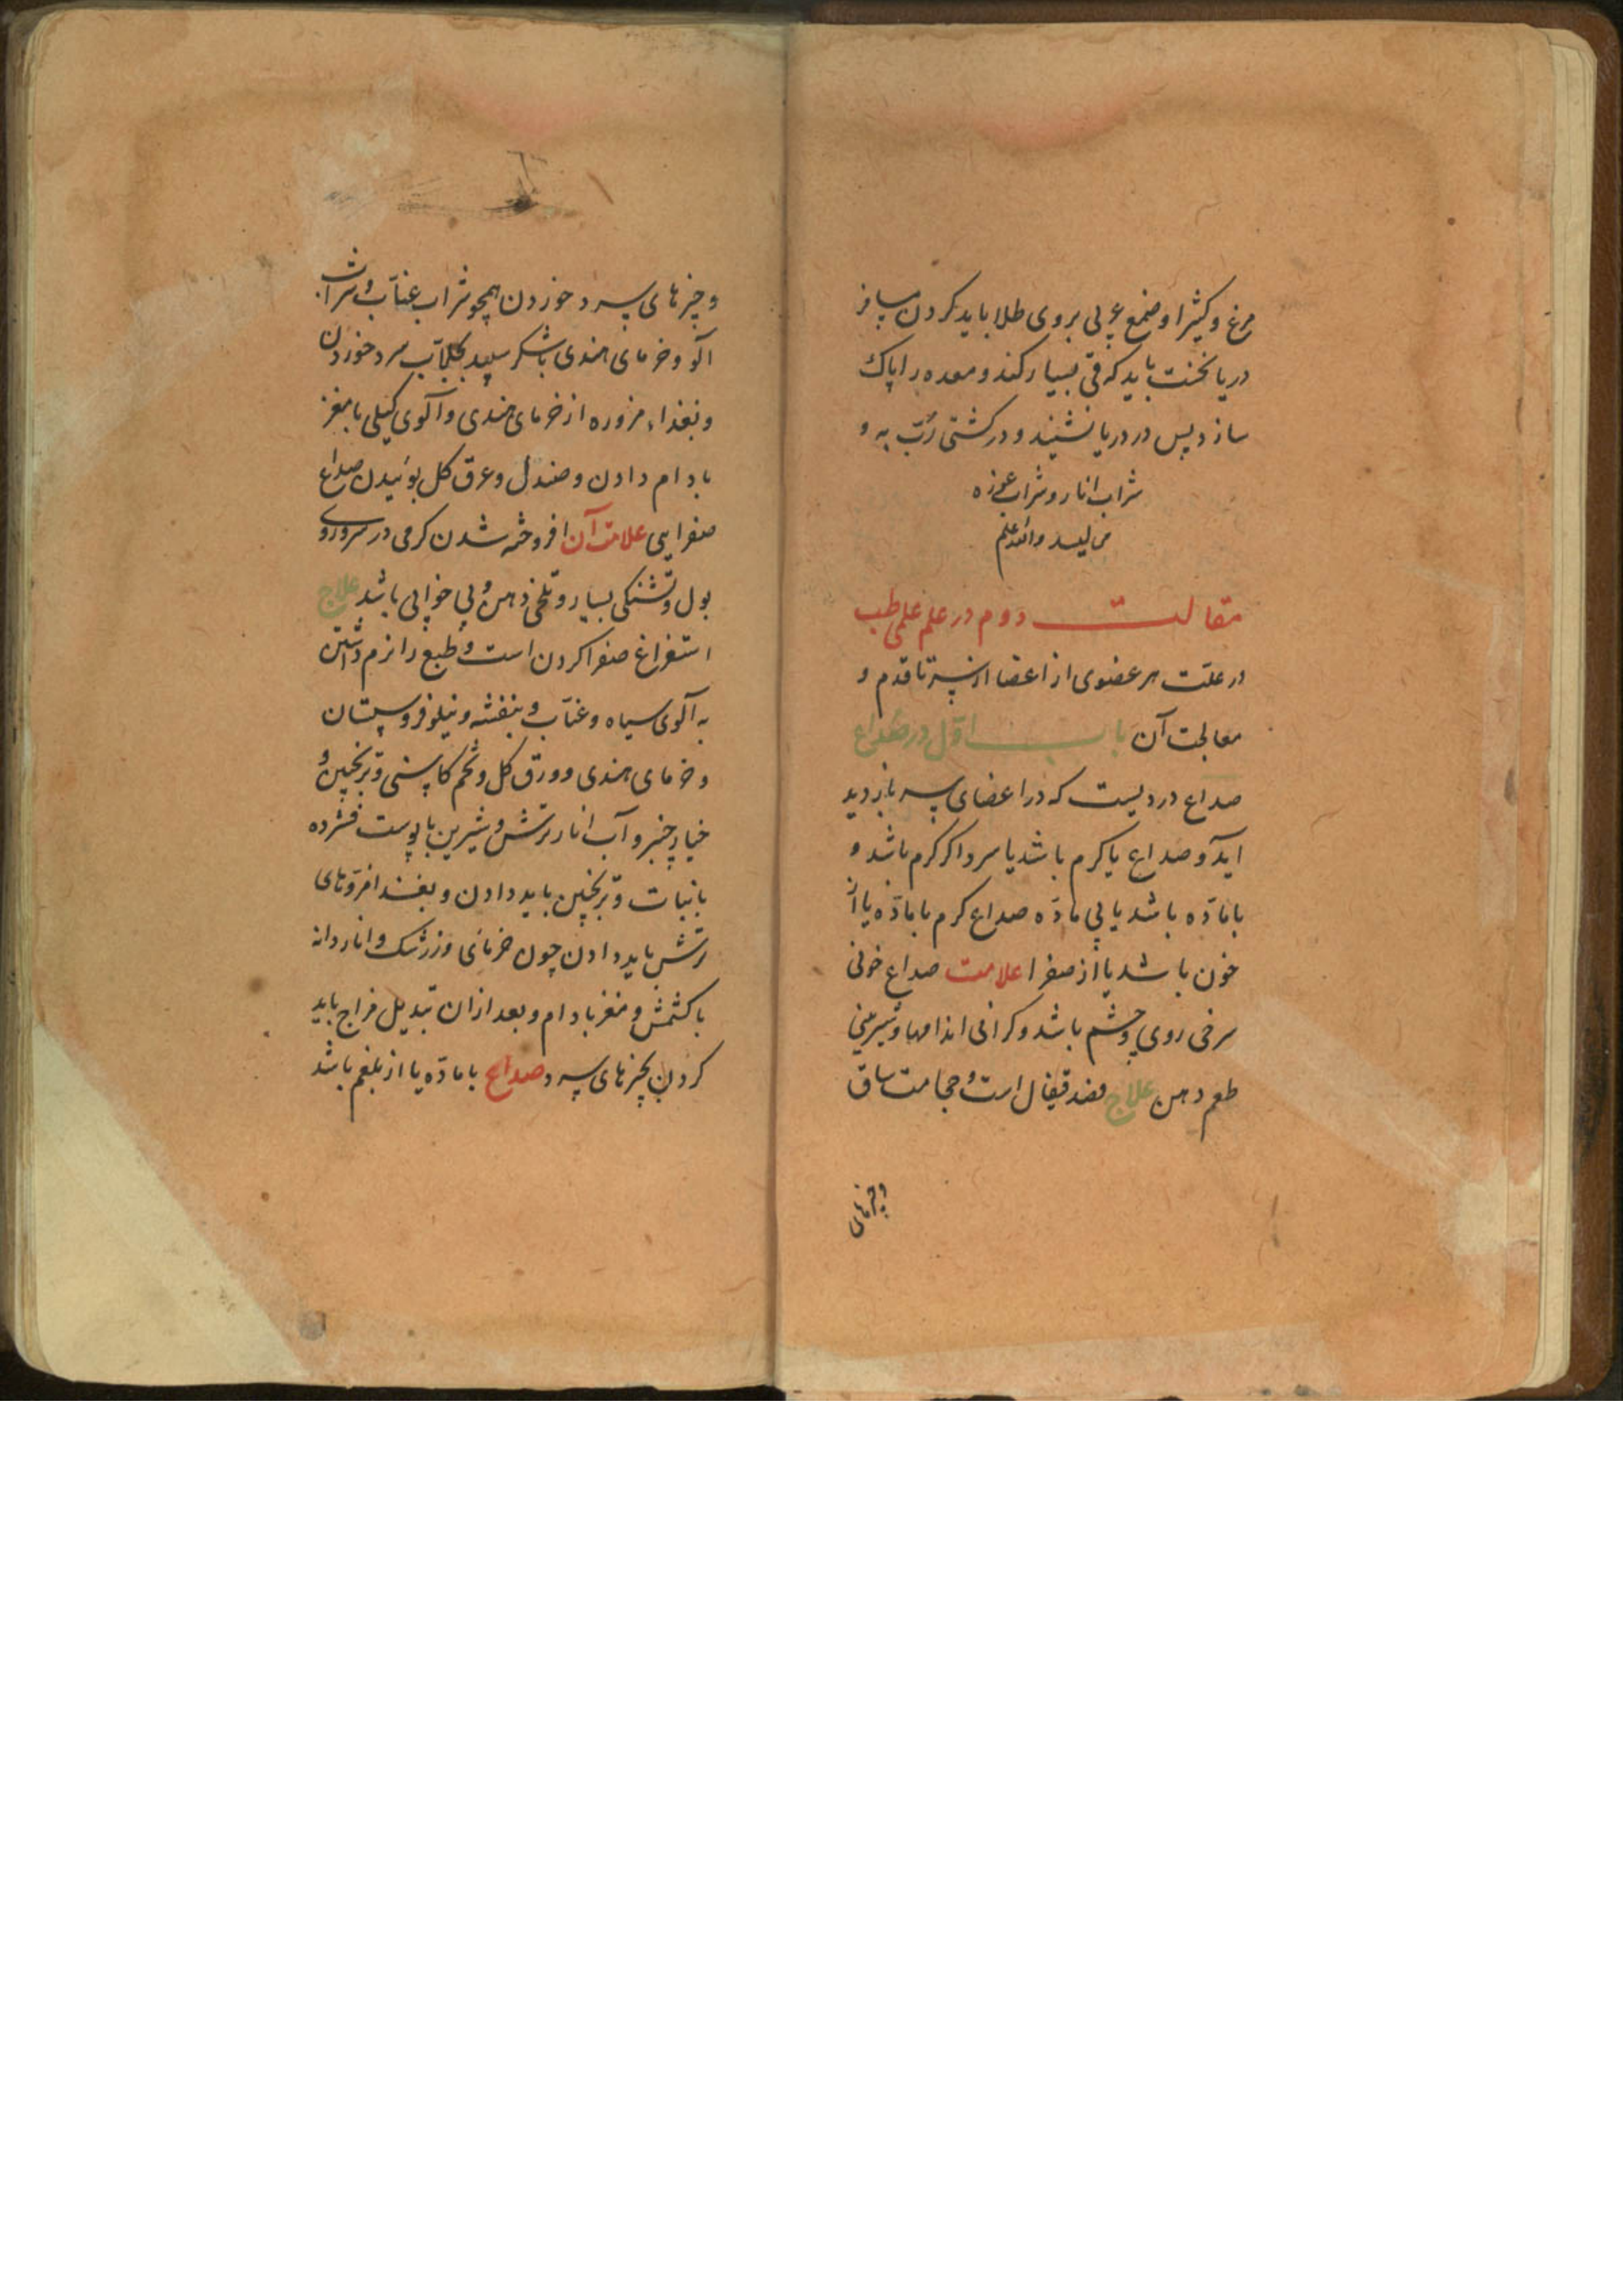 مرغ و کثیرا و صمغ عربی بروی طلا باید کردن مسافر
دریا نخست باید که قی بسیار کند و معده را پاک
سازد پس در دریا نشیند و در کشتی رُبّ به و
شراب انار و شراب غوره
می لیسد والله اعلم
مقالت دوم در علم علمی طب
در علّت هر عضوی از اعضا از سر تا قدم و
معالجت آن باب اوّل در صداع
صداع دردیست که در اعضای سر بازدید
آید و صداع یا کرم باشد یا سرد اکر کرم باشد و
با مادّه باشد یا بی مادّه صداع کرم با مادّه یا از
خون باشد یا از صفرا علامت صداع خونی
سرخی روی و چشم باشد و کرانی اندامها و شیرینی
طعم دهن علاج فصد قیفال است و حجامت ساق
و چیزهای
و چیزهای سرد خوردن همچو شراب عنّاب و شراب
آلو و خرمای هندی با شکر سپید بکلاب سرد خوردن
و بغذاء مزوره از خرمای هندی و آلوی کیلی با مغز
بادام دادن و صندل و عرق کل بوئیدن صداع
صفرایی علامت آن افروخته شدن کرمی در سر و روی
بول و تشنکی بسیار و تلخی دهن و بی خوابی باشد علاج
استفراغ صفرا کردن است و طبع را نرم داشتن
به آلوی سیاه و عنّاب و بنفشه و نیلوفر و سپستان
و خرمای هندی و ورق کل و تخم کاسنی و ترنجبین و
خیارچنبر و آب انار ترش و شیرین با پوست فشرده
با نبات و ترنجبین باید دادن و بغذا مزوّرهای
ترش باید دادن چون خرمای و زرشک و اناردانه
با کشمش و مغز بادام و بعد ازان تبدیل مزاج باید
کردن بچیزهای سرد صداع با مادّه یا از بلغم باشد